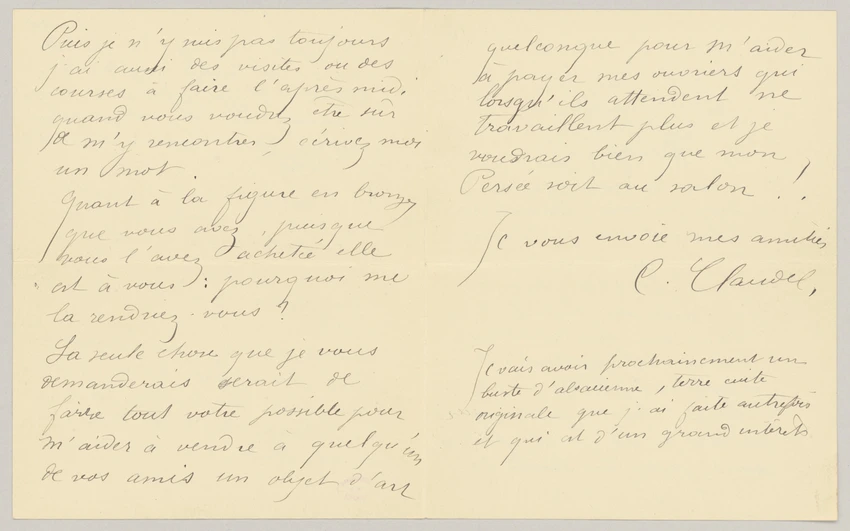 Puis je n'y suis pas toujours
j'ai aussi des visites ou des
courses à faire l'après midi,
quand vous voudrez être sûr
de m'y rencontrer, écrivez moi
un mot.
Quant à la figure en bronze
que vous avez, puisque
vous l'avez achetée elle
est à vous : pourquoi me
la rendriez-vous ?
La seule chose que je vous
demanderais serait de
faire tout votre possible pour
m'aider à vendre à quelqu'un
de vos amis un objet d'art
quelconque pour m'aider
à payer mes ouvriers qui
lorsqu'ils attendent ne
travaillent plus et je
voudrais bien que mon
Persée soit au salon !
Je vous envoie mes amitiés
C. Claudel,
Je vais avoir prochainement un
buste d'alsacienne, terre cuite
originale que j'ai faite autrefois
et qui est d'un grand intérêt